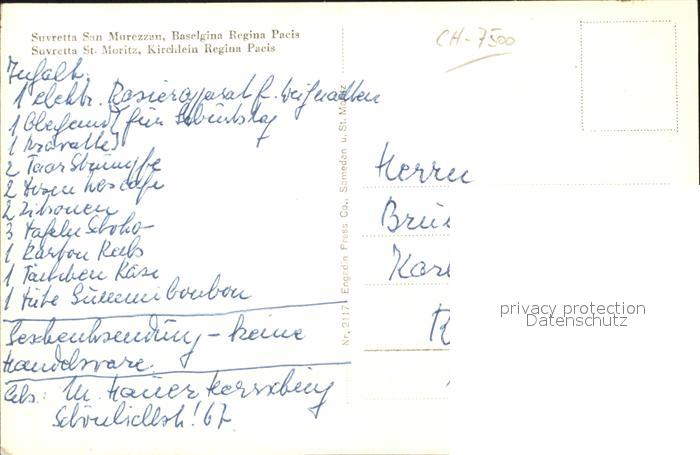 Suvretta San Murezzan, Baselgina Regina Pacis
Suvretta St. Moritz, Kirchlein Regina Pacis
CH-7500
Inhalt.
1 elektr. Rasierapparat f. Weihnachten
1 Oberhemd für Geburtstag
1 Kravatte
2 Paar Strümpfe
2 Dosen Nescafe
2 Zitronen
3 Tafeln Schoko-
1 Karton Keks
1 Käse
1 Tüte Gummibonbon
Geschenksendung - keine
Handelsware.
Abs.: M.
67
Nr. 2117 Engadin Press Co., Samedan u. St. Moritz
Herrn
Brü
Karl
R
privacy protection
Datenschutz